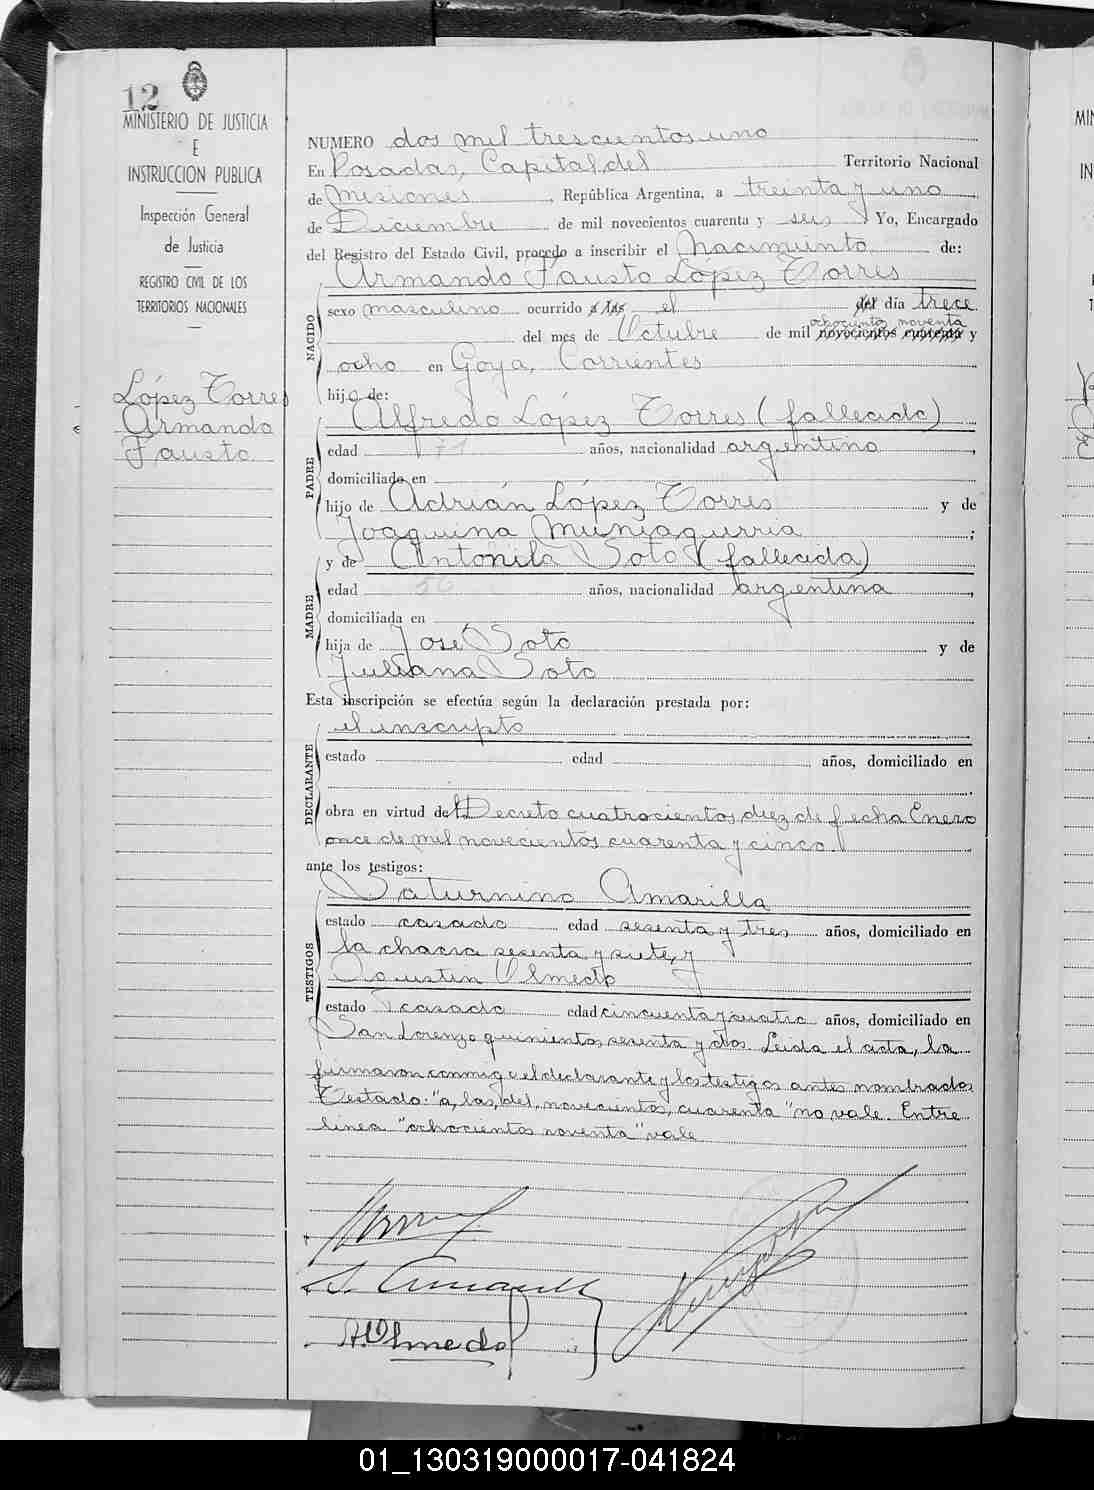 12
MINISTERIO DE JUSTICIA
E
INSTRUCCION PUBLICA
Inspección General
de Justicia
REGISTRO CIVIL DE LOS
TERRITORIOS NACIONALES
López Torres
Armando
Fausto
NUMERO dos mil trescientos uno
En Posadas, Capital del Territorio Nacional
de Misiones, República Argentina, a treinta y uno
de Diciembre de mil novecientos cuarenta y seis Yo, Encargado
del Registro del Estado Civil, procedo a inscribir el Nacimiento de:
Armando Fausto López Torres
NACIDO
sexo masculino ocurrido a las el del día trece
ochocientos noventa
del mes de Octubre de mil novecientos cuarenta y
ocho en Goya, Corrientes
hijo de:
Alfredo López Torres (fallecido)
PADRE
edad 71 años, nacionalidad argentino
domiciliado en
hijo de Adrián López Torres y de
Joaquina Muniagurria;
y de Antonila Soto (fallecida)
MADRE
edad 56 años, nacionalidad argentina
domiciliada en
hija de José Soto y de
Juliana Soto
Esta inscripción se efectúa según la declaración prestada por:
el inscripto
DECLARANTE
estado edad años, domiciliado en
obra en virtud del Decreto cuatrocientos diez de fecha Enero
once de mil novecientos cuarenta y cinco.
ante los testigos:
Saturnino Amarilla
TESTIGOS
estado casado edad sesenta y tres años, domiciliado en
la chacra sesenta y siete, y
Agustin Olmedo
estado casado edad cincuenta y cuatro años, domiciliado en
San Lorenzo quinientos sesenta y dos. Leida el acta, la
firmaron conmigo el declarante y los testigos antes nombrados
Testado: "a, las, del, novecientos, cuarenta" no vale. Entre
linea "ochocientos noventa" vale
S. Amarilla
A. Olmedo
01_130319000017-041824